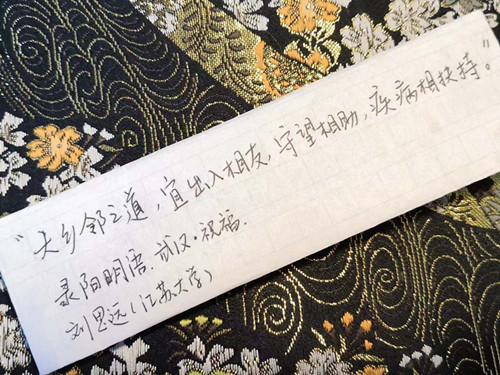 “大乡邻之道，宜出入相友，守望相助，疾病相扶持。”
录阳明语．武汉·祝福．
刘思远（江苏大学）